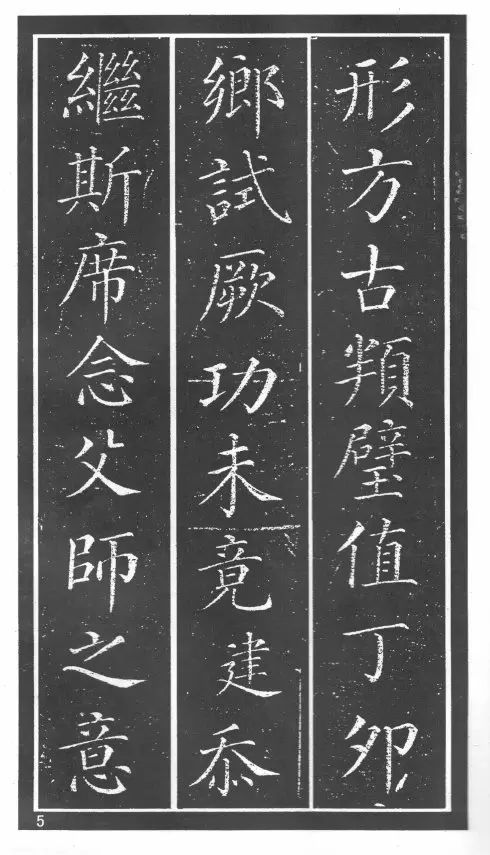 形方古頖璧值丁卯
鄉試厥功未竟建忝
繼斯席念父師之意
5